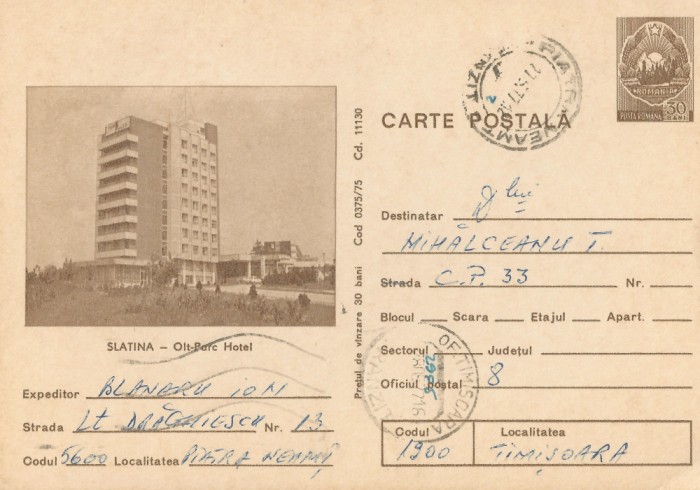 CARTE POȘTALĂ
ROMANIA
POSTA ROMANA 30 BANI
PIATRA NEAMT
SLATINA – Olt-Parc Hotel
Prețul de vînzare 30 bani Cod 0375/75 Cd. 11130
Expeditor BLANERU ION
Strada Lt DRĂGHIESCU Nr. 13
Codul 5600 Localitatea PIATRA NEAMȚ
Destinatar Dlui
MIHALCEANU T.
Strada C.P. 33 Nr.
Blocul Scara Etajul Apart.
Sectorul Județul
Oficiul poștal 8
OF. TIMISOARA
Codul Localitatea
1900 TIMIȘOARA